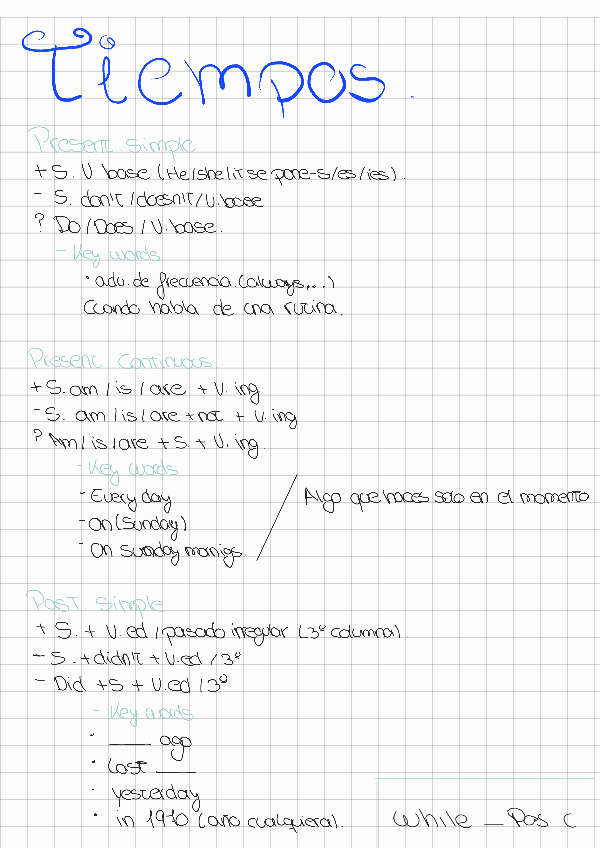 Tiempos.
Present simple
+ S. V base (He/she/it se pone -s/es/ies).
- S. don't /doesn't / V. base
? Do / Does / V. base.
- Key words
· adv. de frecuencia. (always,...)
Cuando habla de una rutina.
Present Continuous
+ S. am / is / are + V. ing
- S. am / is / are + not + V. ing
? Am / is / are + S. + V. ing.
- Key words
- Every day
- On (Sunday)
- On sunday mornigs.
Algo que haces solo en el momento
Past. simple
+ S. + V. ed / pasado irregular (3º columna).
- S. + didn't + V. ed / 3º
- Did + S + V. ed / 3º
- Key words
· ____ ago
· Last ____
· yesterday
· in 1910 (año cualquiera).
While _ Pas C